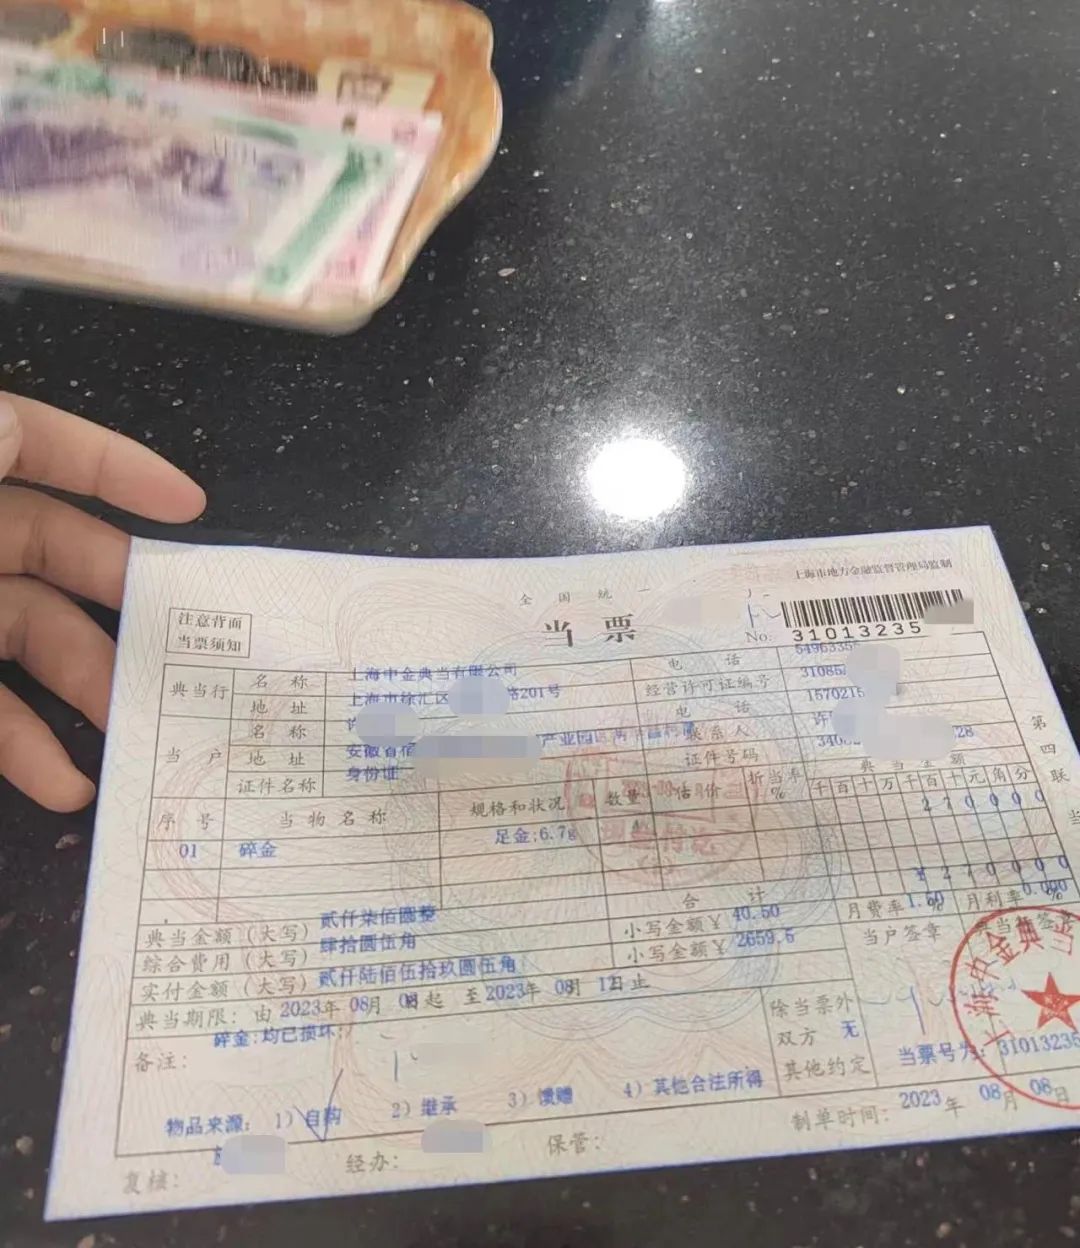 上海市地方金融监督管理局监制
全国统一
当票
注意背面
当票须知
No: 31013235
典当行 名称 上海中金典当有限公司 电话 5496335
地址 上海市徐汇区 路201号 经营许可证编号 31085
当户 名称 许 电话 1570215
地址 安徽省宿 产业园 联系人 许
证件名称 身份证 证件号码 340 28
序号 当物名称 规格和状况 数量 估价 折当率% 典当金额
千百十万千百十元角分
01 碎金 足金;6.7g 270000
合计 ¥270000
典当金额(大写) 贰仟柒佰圆整 月费率1.50% 月利率0.000%
综合费用(大写) 肆拾圆伍角 小写金额¥ 40.50
实付金额(大写) 贰仟陆佰伍拾玖圆伍角 小写金额¥ 2659.5
当户签章 典当行签章
典当期限: 由2023年08月08起 至2023年08月 止
备注: 碎金:均已损坏;
除当票外
双方 无
其他约定
当票号为:31013235
物品来源: 1)自购 2)继承 3)馈赠 4)其他合法所得
制单时间: 2023年08月08日
复核: 经办: 保管:
第四联
当
上海中金典当